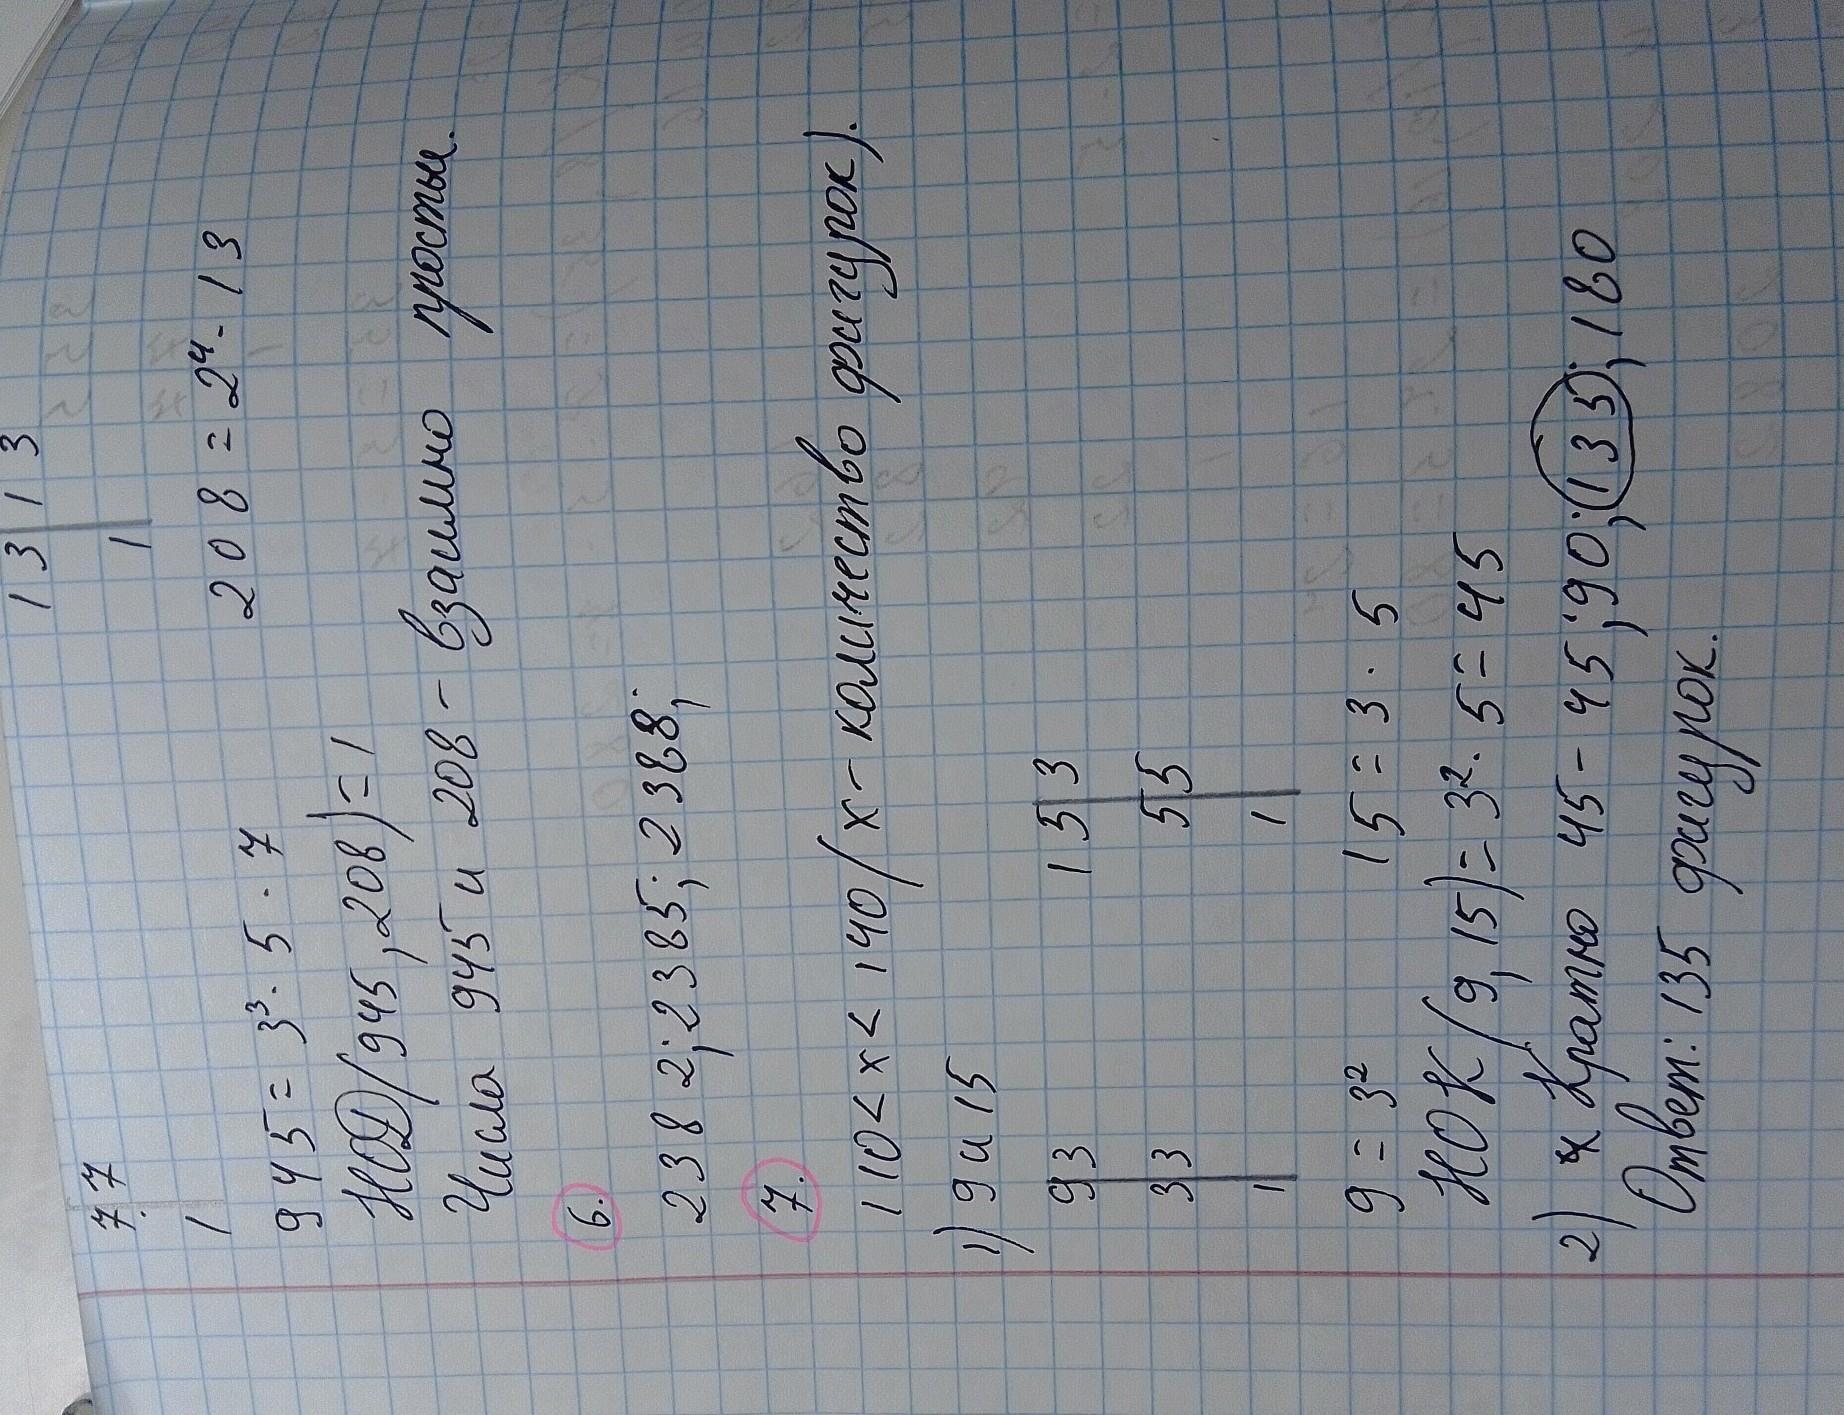 7 7
1
13 13
1
945 = 3³ · 5 · 7
208 = 2⁴ · 13
НОД (945, 208) = 1
Числа 945 и 208 – взаимно простые.
6.
2382; 2385; 2388;
7.
110 < x < 140 (x – количество фигурок).
1) 9 и 15
9 3
3 3
1
15 3
5 5
1
9 = 3²
15 = 3 · 5
НОК (9, 15) = 3² · 5 = 45
2) x Кратно 45 – 45; 90; 135; 180
Ответ: 135 фигурок.